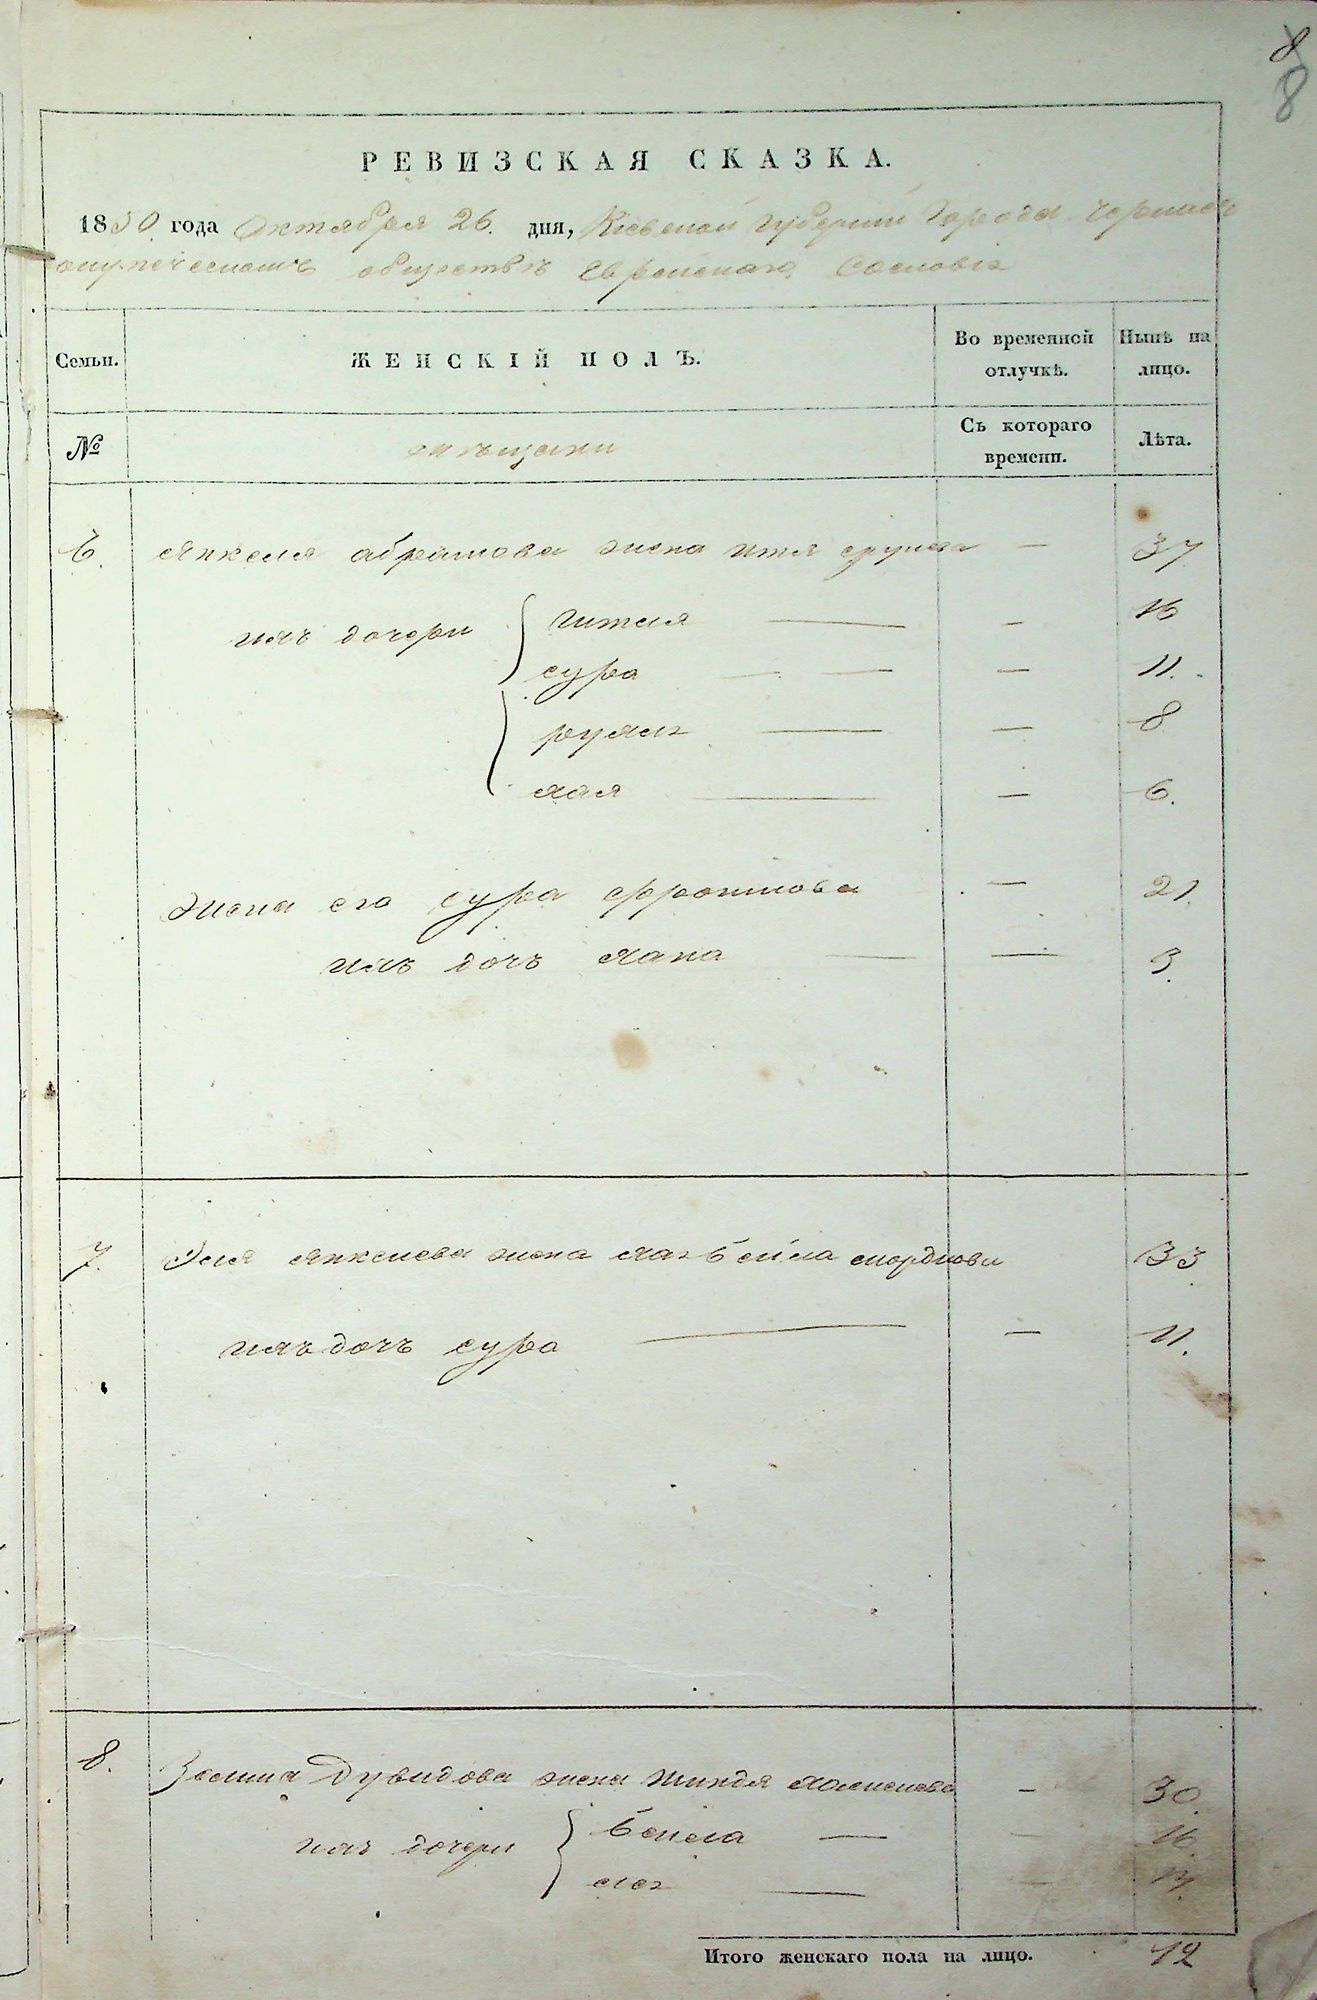 8
8
РЕВИЗСКАЯ СКАЗКА.
1850 года Октября 26. дня, Кіевской Губерніи Города Черкасъ
обществѣ Еврейскаго Сословія
Семьи.
ЖЕНСКІЙ ПОЛЪ.
Во временной отлучкѣ.
Нынѣ на лицо.
№
мѣщани
Съ котораго времени.
Лѣта.
6. Янкеля Абрамова жена Итя — 37
ихъ дочери Гитля — — 16
сура — — — 11.
рухля — — 8
хая — — 6.
жена его сура фроимова — 21.
ихъ дочь хана — — 3.
7. Эля Янкелева жена хая бейла мордкова 33
ихъ дочь сура — — 11.
8. Зелмана Дувидова жена Миндя — 30.
ихъ дочери бейла — — 16.
лея — — 13.
Итого женскаго пола на лицо. 12